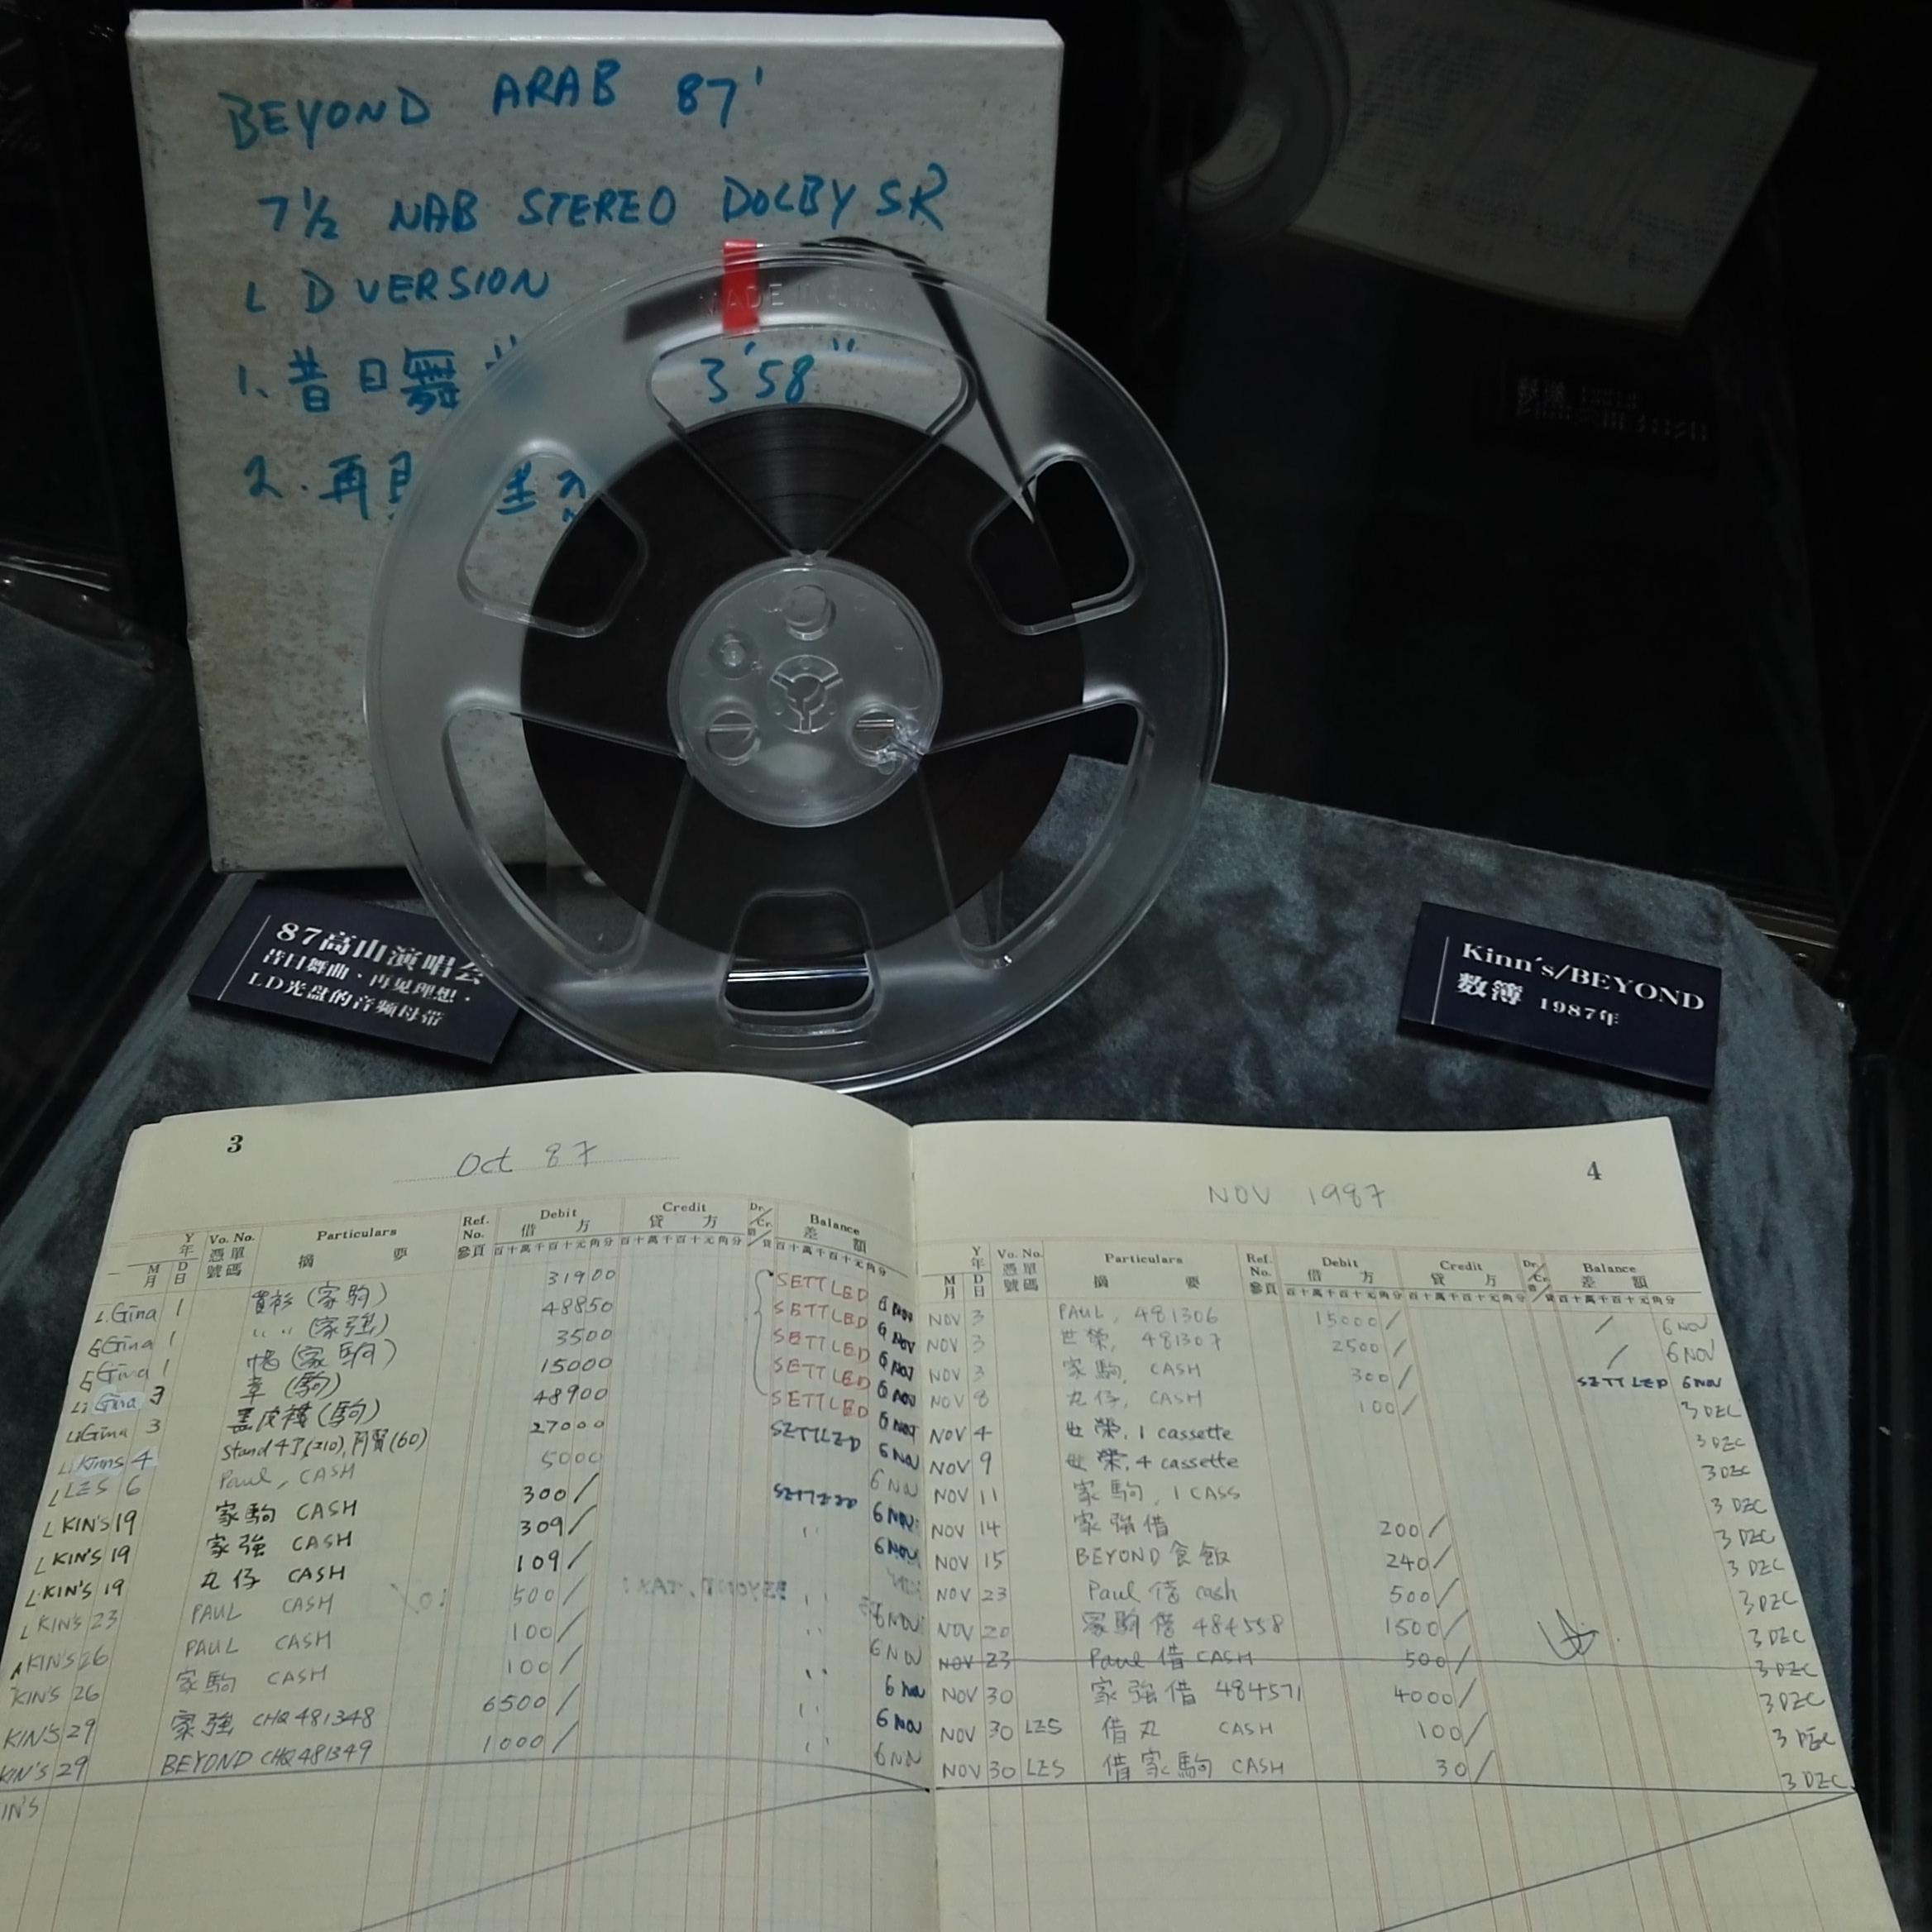 BEYOND ARAB 87'
7 1/2 NAB STEREO DOLBY SR
L D VERSION
1. 昔日舞
3'58"
2. 再
MADE IN
87高山演唱会
昔日舞曲、再见理想·
LD光盘的音频母带
Kinn's/BEYOND
数簿 1987年
3
Oct 87
Y 年 M 月 D 日 Vo. No. 憑單號碼 Particulars 摘要 Ref. No. 參頁 Debit 借方 Credit 貸方 Dr/Cr 借/貸 Balance 差額
百十萬千百十元角分 百十萬千百十元角分 百十萬千百十元角分
Gina 1 (家駒) 31900 SETTLED 6 NOV
Gina 1 " " (家強) 48850 SETTLED 6 NOV
Gina 1 (家駒) 3500 SETTLED 6 NOV
Gina 3 章 (駒) 15000 SETTLED 6 NOV
Gina 3 皮褸 (駒) 48900 SETTLED 6 NOV
Kinns 4 Stand 4了(210), (60) 27000 SETTLED 6 NOV
LES 6 Paul, CASH 5000 6 NOV
L KIN'S 19 家駒 CASH 300/ SETTLED 6 NOV
L KIN'S 19 家強 CASH 309/ " 6 NOV
L KIN'S 19 丸仔 CASH 109/
L KIN'S 23 PAUL CASH 500/ " 6 NOV
KIN'S 26 PAUL CASH 100/ " 6 NOV
KIN'S 26 家駒 CASH 100/ " 6 NOV
KIN'S 29 家強 CHQ 481348 6500/ " 6 NOV
KIN'S 29 BEYOND CHQ 481349 1000/ " 6 NOV
IN'S
4
NOV 1987
Y 年 M 月 D 日 Vo. No. 憑單號碼 Particulars 摘要 Ref. No. 參頁 Debit 借方 Credit 貸方 Dr/Cr 借/貸 Balance 差額
百十萬千百十元角分 百十萬千百十元角分 百十萬千百十元角分
NOV 3 PAUL, 481306 15000/ / 6 NOV
NOV 3 世榮, 481307 2500/ / 6 NOV
NOV 3 家駒, CASH 300/ SETTLED 6 NOV
NOV 8 丸仔, CASH 100/ 3 DEC
NOV 4 世榮, 1 cassette 3 DEC
NOV 9 世榮, 4 cassette 3 DEC
NOV 11 家駒, 1 CASS 3 DEC
NOV 14 家強借 200/ 3 DEC
NOV 15 BEYOND食飯 240/ 3 DEC
NOV 23 Paul 借 cash 500/ 3 DEC
NOV 20 家駒借 484558 1500/ 3 DEC
NOV 23 Paul 借 CASH 500/ 3 DEC
NOV 30 家強借 484571 4000/ 3 DEC
NOV 30 LES 借丸 CASH 100/ 3 DEC
NOV 30 LES 借家駒 CASH 30/ 3 DEC